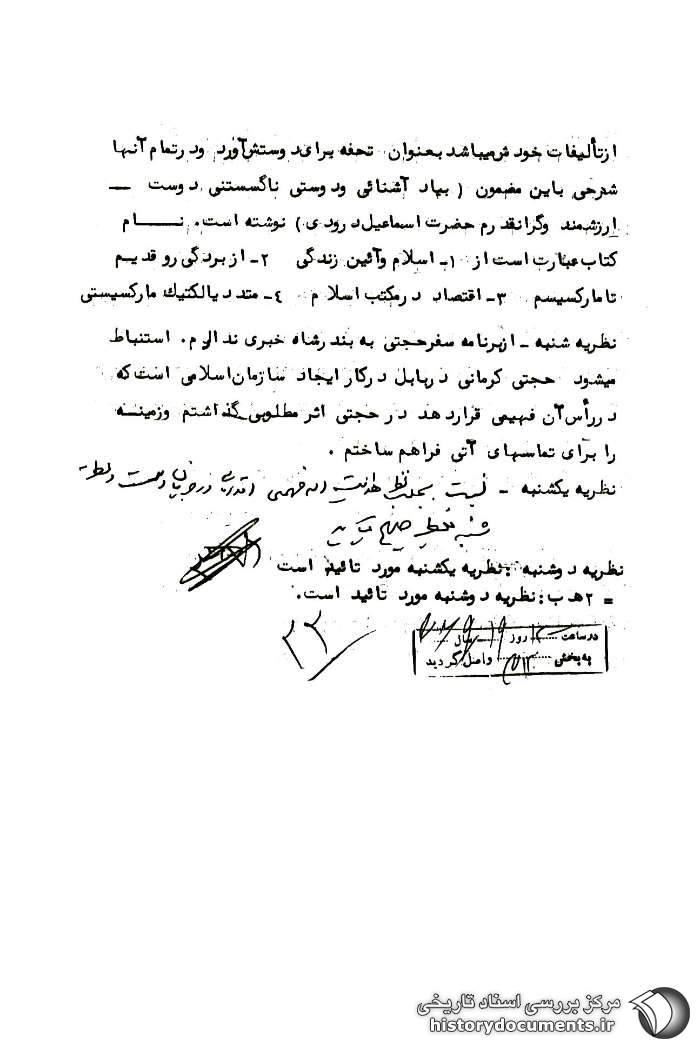 ازتألیفات خودش میباشد بعنوان تحفه برای دوستش آورد ودرتمام آنها
شرحی باین مضمون ( بیاد آشنائی ودوستی ناگسستنی دوست ـــ
ارزشمند وگرانقدرم حضرت اسماعیل درودی ) نوشته است . نـــــام
کتاب عبارت است از ۱ـ اسلام وآئین زندگی ۲ـ از بردگی روم قدیم
تا مارکسیسم ۳ـ اقتصاد درمکتب اسلام ۴ـ متد دیالکتیك مارکسیستی
نظریه شنبه ـ ازبرنامه سفرحجتی به بندرشاه خبری ندارم . استنباط
میشود حجتی کرمانی دربابل درکار ایجاد سازمان اسلامی است که
دررأس آن فهیمی قراردهد در حجتی اثر مطلوبی گذاشتم وزمینــه
را برای تماسهای آتی فراهم ساختم .
نظریه یکشنبه ـ نسبت
شنبه
نظریه دوشنبه : نظریه یکشنبه مورد تائید است
= ۲ هـ ب : نظریه دوشنبه مورد تائید است .
۲۲
درساعت روز سال
به بخش ۳۱۲ واصل گردید
مرکز بررسی اسناد تاریخی
historydocuments.ir